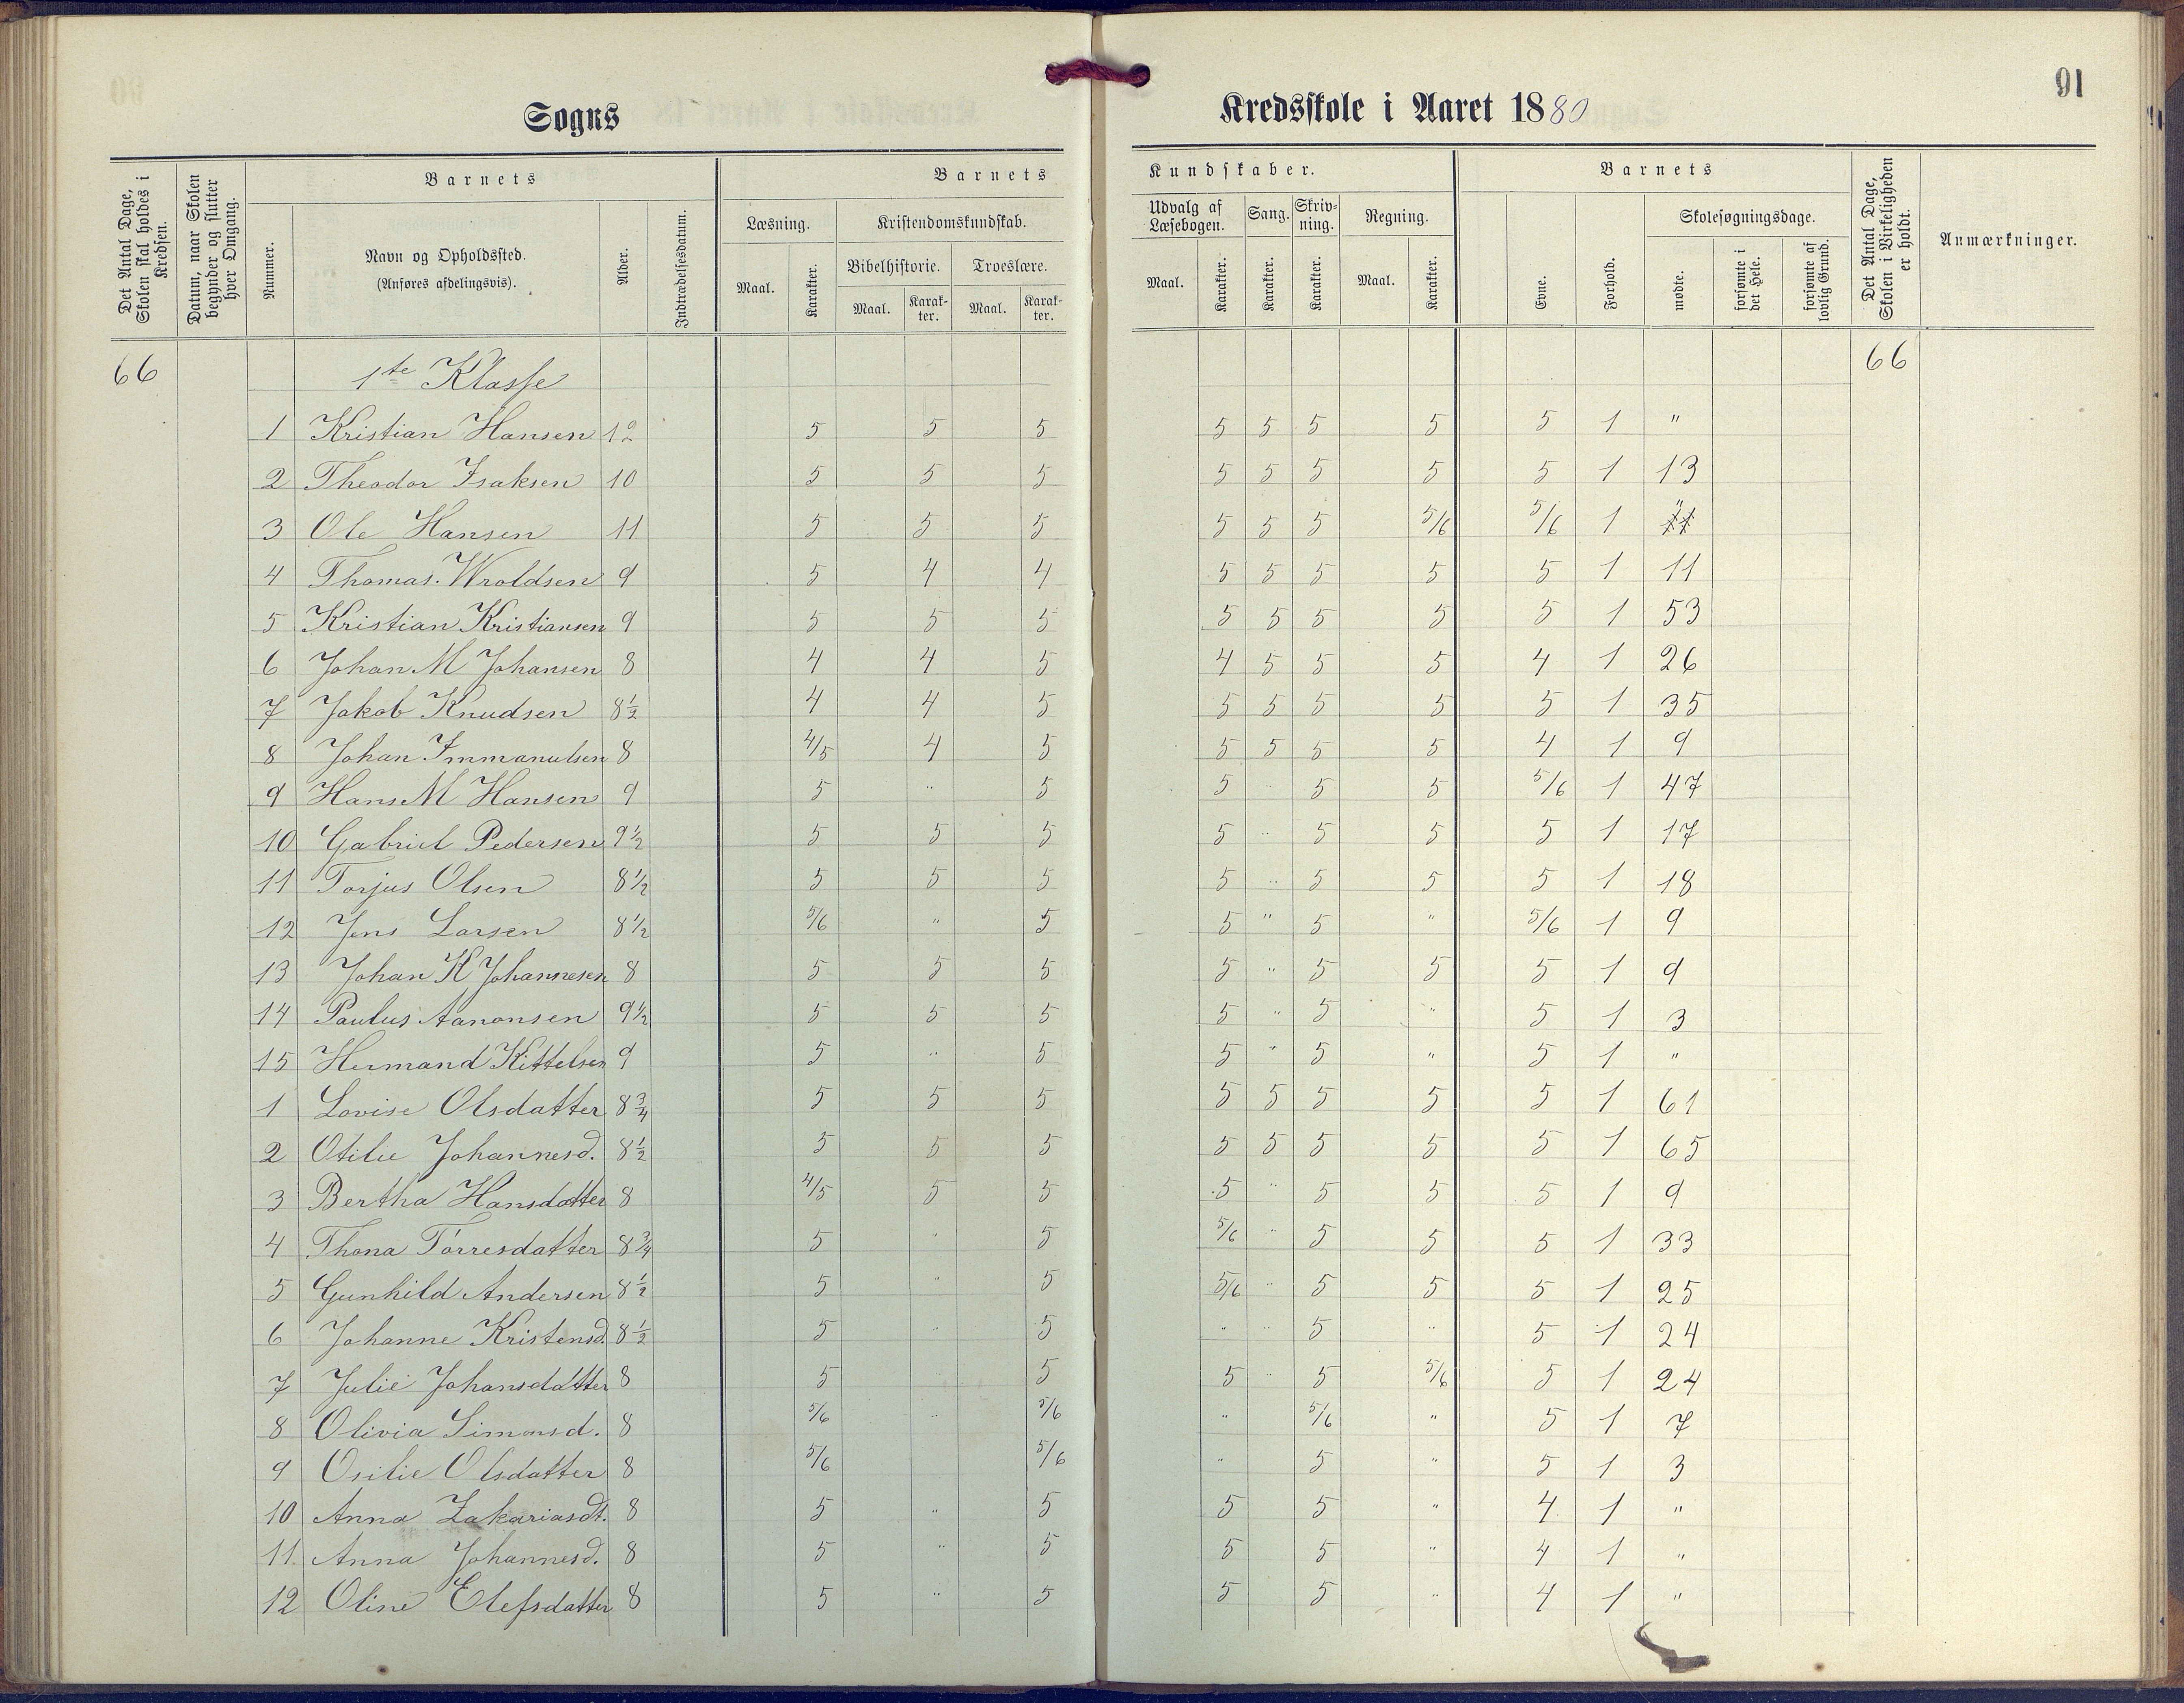 91
Sogns Kredsskole i Aaret 1880
Det Antal Dage, Skolen skal holdes i Kredsen.
Datum, naar Skolen begynder og slutter hver Omgang.
Barnets
Nummer.
Navn og Opholdssted.
(Anføres afdelingsvis).
Alder.
Indtrædelsesdatum.
Barnets Kundskaber.
Læsning.
Maal. Karakter.
Kristendomskundskab.
Bibelhistorie. Troeslære.
Maal. Karakter. Maal. Karakter.
Udvalg af Læsebogen. Sang. Skrivning. Regning.
Maal. Karakter. Karakter. Karakter. Maal. Karakter.
Barnets
Evne. Forhold.
Skolesøgningsdage.
mødte. forsømte i det Hele. forsømte af lovlig Grund.
Det Antal Dage, Skolen i Virkeligheden er holdt.
Anmærkninger.
66 1te Klasse 66
1 Kristian Hansen 5 5 5 5 5 5 5 5 1 "
2 Theodor Isaksen 10 5 5 5 5 5 5 5 5 1 13
3 Ole Hansen 11 5 5 5 5 5 5 5/6 5/6 1 "
4 Thomas Wroldsen 9 5 4 4 5 5 5 5 5 1 11
5 Kristian Kristiansen 9 5 5 5 5 5 5 5 5 1 53
6 Johan M Johansen 8 4 4 5 4 5 5 5 4 1 26
7 Jakob Knudsen 8½ 4 4 5 5 5 5 5 5 1 35
8 Johan Immanulsen 8 4/5 4 5 5 5 5 5 4 1 9
9 Hans M Hansen 9 5 " 5 5 " 5 5 5/6 1 47
10 Gabriel Pedersen 9½ 5 5 5 5 " 5 5 5 1 17
11 Torjus Olsen 8½ 5 5 5 5 " 5 5 5 1 18
12 Jens Larsen 8½ 5/6 " 5 5 " 5 " 5/6 1 9
13 Johan K Johannesen 8 5 5 5 5 " 5 5 5 1 9
14 Paulus Aanonsen 9½ 5 5 5 5 " 5 " 5 1 3
15 Hermand Kittelsen 9 5 " 5 5 " 5 " 5 1 "
1 Lovise Olsdatter 8¾ 5 5 5 5 5 5 5 5 1 61
2 Otilie Johannesd. 8½ 5 5 5 5 5 5 5 5 1 65
3 Bertha Hansdatter 8 4/5 5 5 5 " 5 5 5 1 9
4 Thona Torresdatter 8¾ 5 " 5 5/6 " 5 5 5 1 33
5 Gunhild Andersen 8½ 5 " 5 5/6 " 5 5 5 1 25
6 Johanne Kristensd. 8½ 5 " 5 " " 5 " 5 1 24
7 Julie Johansdatter 8 5 5 5 " 5 5/6 5 1 24
8 Olivia Simonsd. 8 5/6 " 5/6 " 5/6 " 5 1 7
9 Osilie Olsdatter 8 5/6 5/6 " 5 " 5 1 3
10 Anna Zakariasdt. 8 5 " 5 5 5 " 4 1 "
11 Anna Johannesd. 8 5 " 5 5 5 " 4 1 "
12 Oline Elefsdatter 8 5 " 5 5 5 " 4 1 "